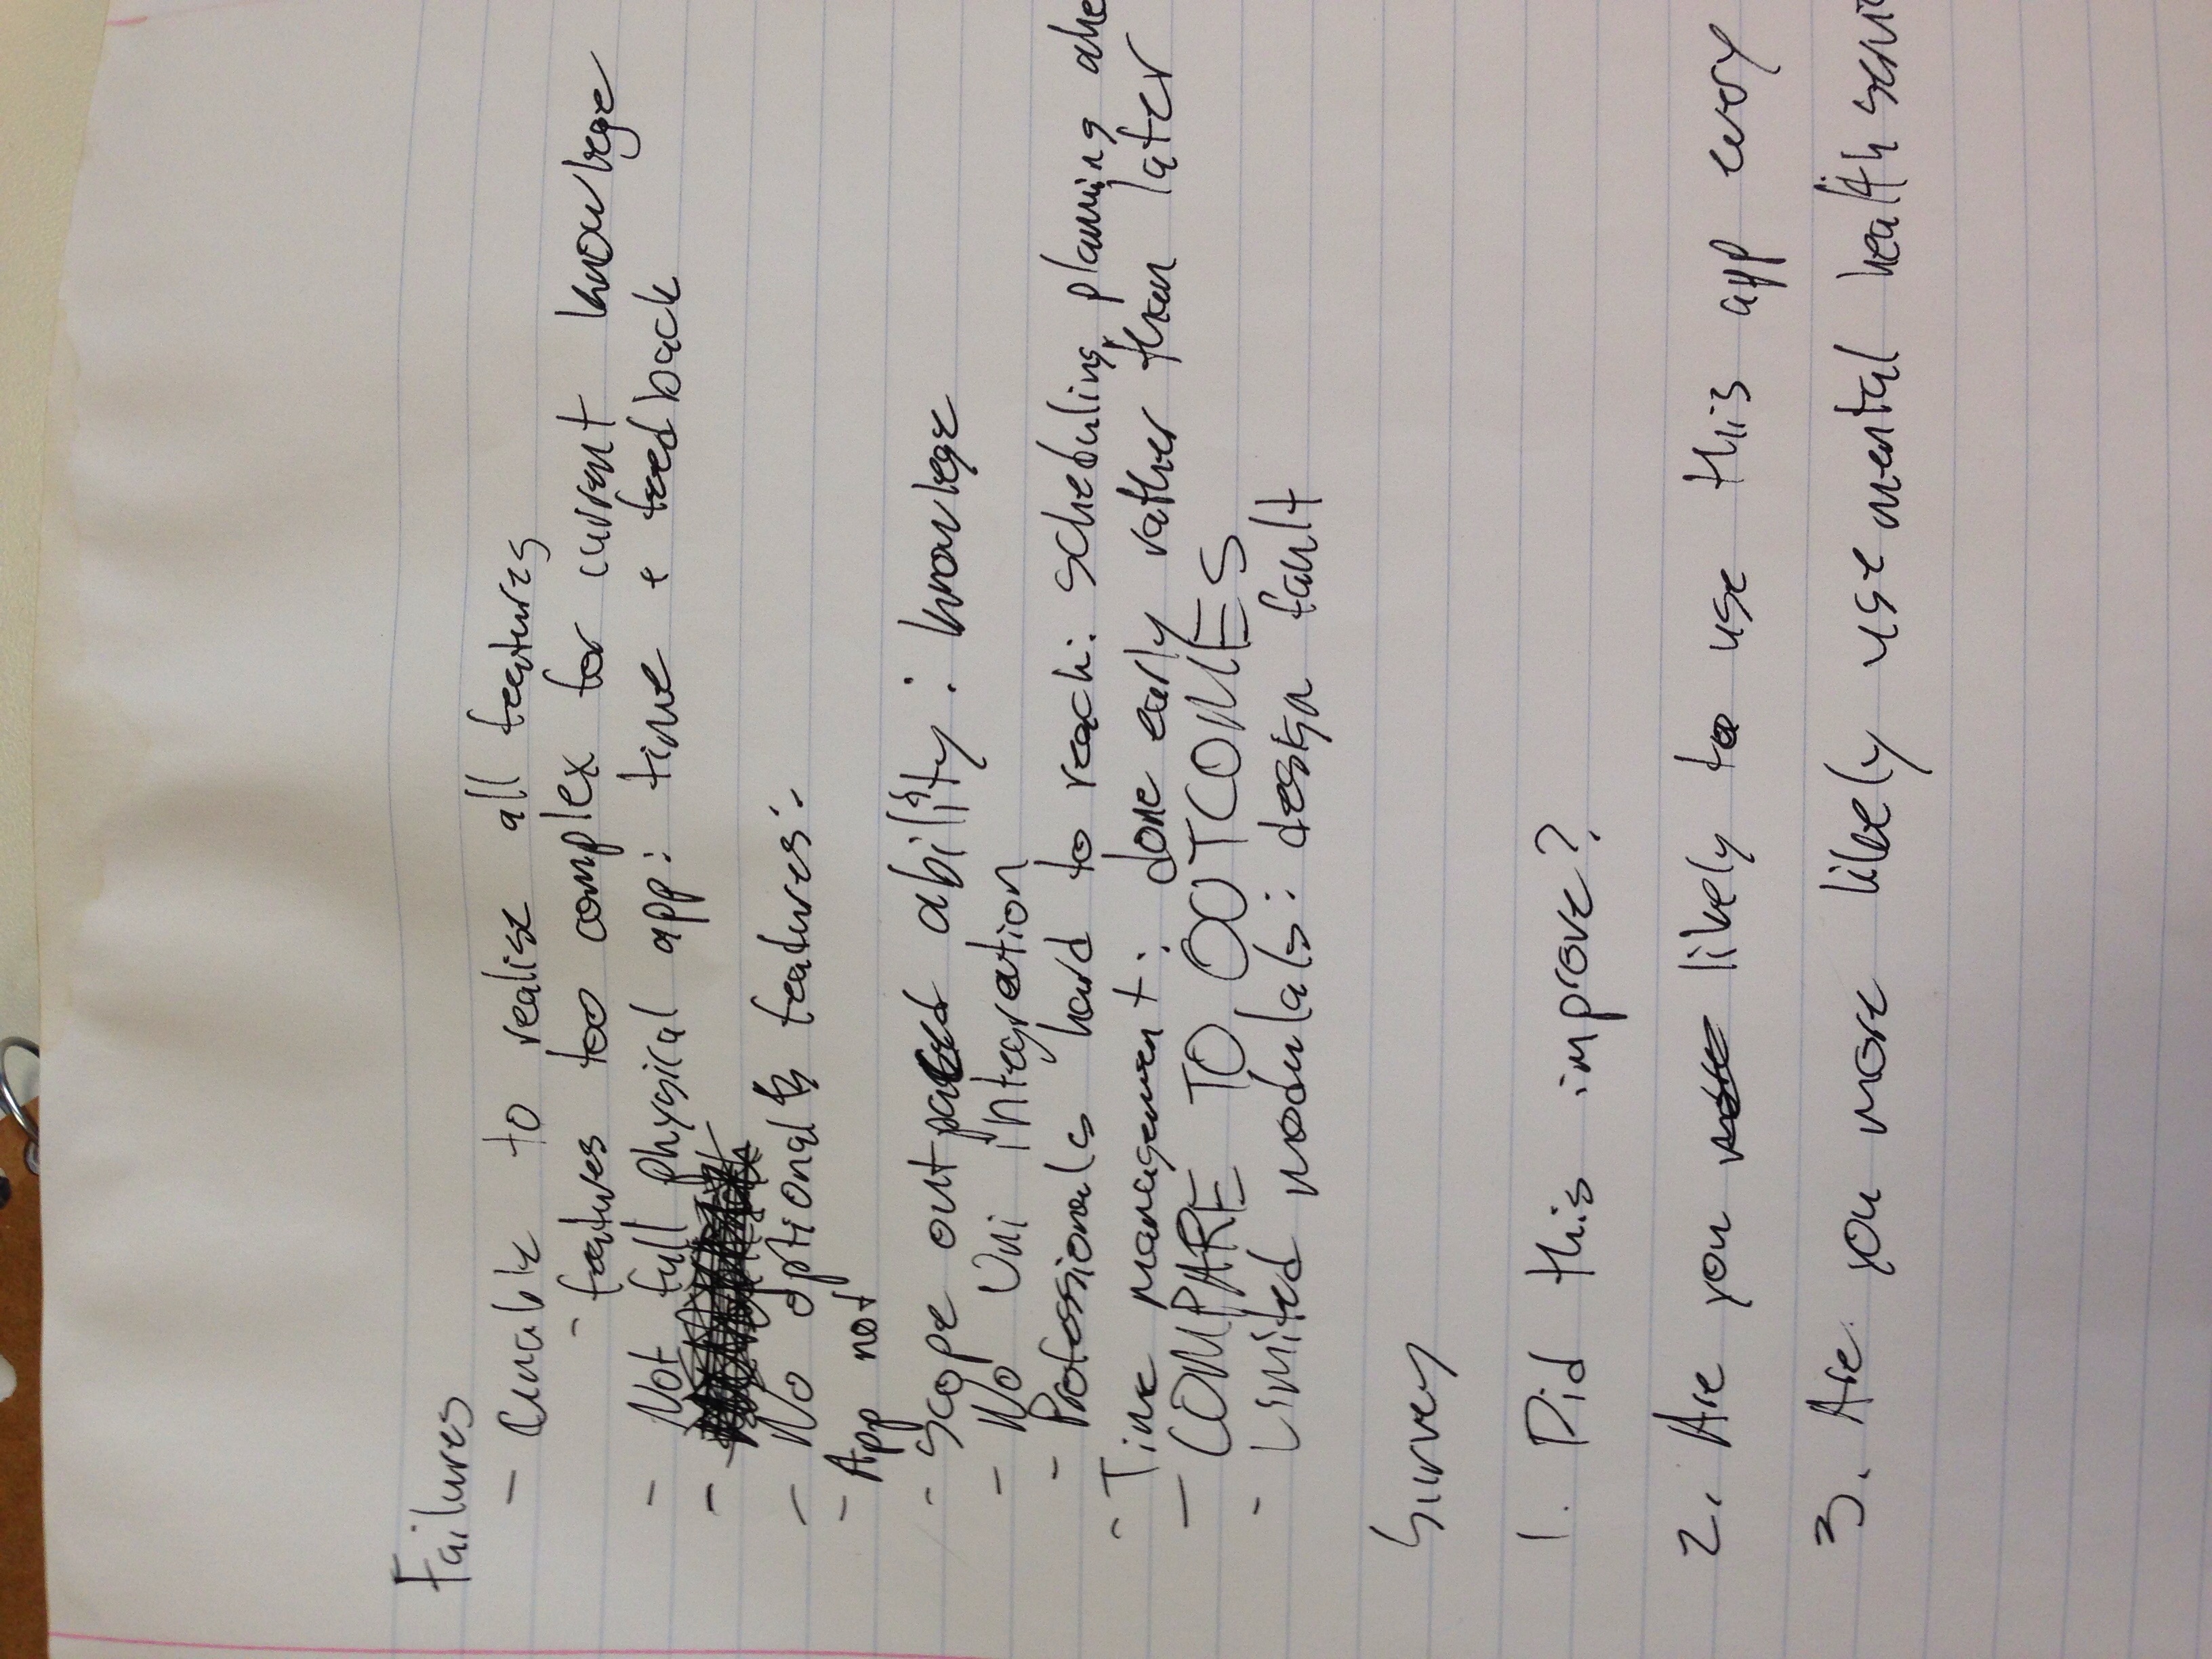 Failures
- Unable to realise all features
- features too complex for current knowlege
- Not full physical app: time + feedback
-
- No optional features:
- App not
- Scope outpaced ability: knowlege
- No Uni integration
- Professionals hard to reach: scheduling, planning ahe
- Time management: done early rather than later
- COMPARE TO OUTCOMES
- Limited modulals: design fault
Survey
1. Did this improve?
2. Are you likely to use this app every
3. Are you more likely use mental health servi